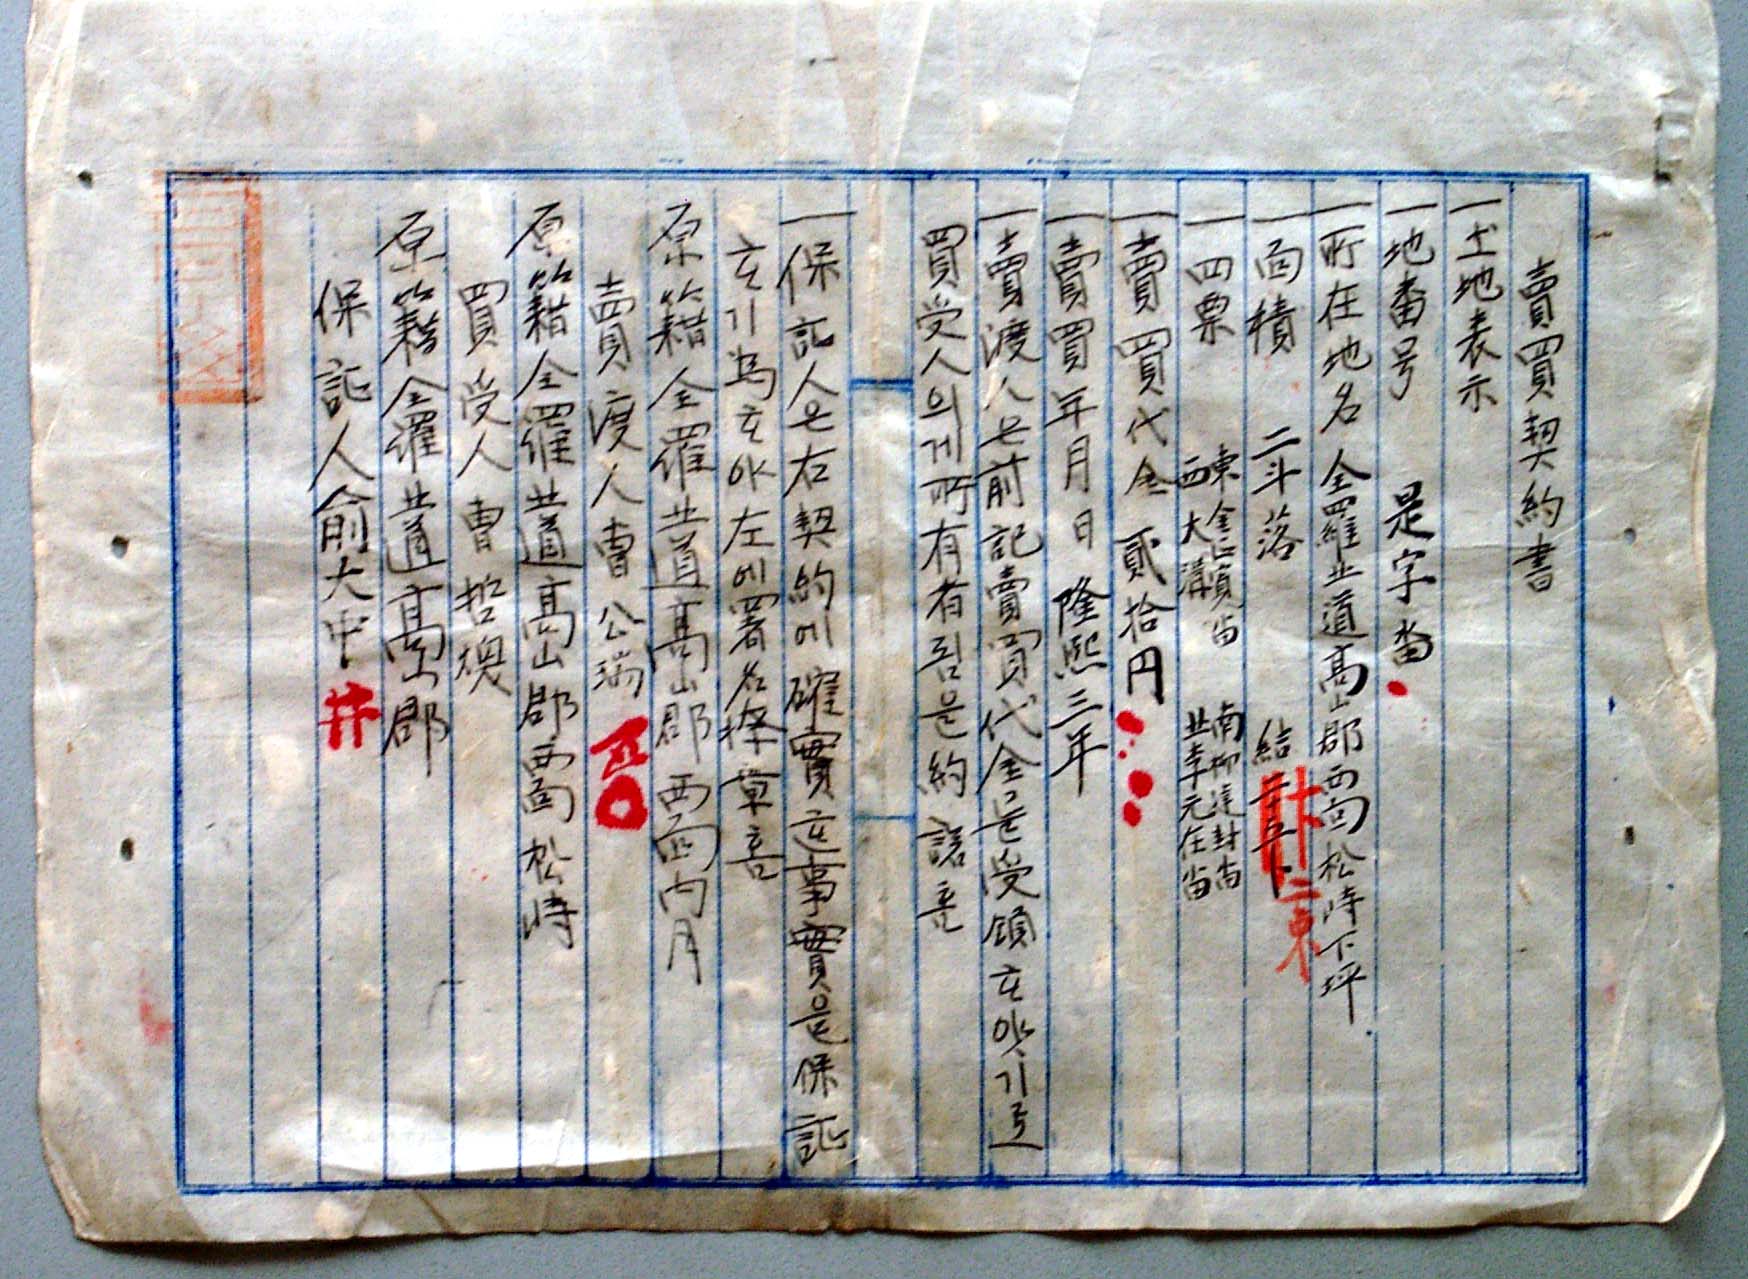 賣買契約書
一土地表示
一地番号 是字畓
一所在地名 全羅北道高山郡西面松峙下坪
一面積 二斗落 結
一四票 東金 畓 西大溝 南柳達封畓 北李元在畓
一賣買代金 貳拾円
一賣買年月日 隆熙三年
一賣渡人은前記賣買代金은受領
買受人의게所有者됨은約諾홈
一保証人은右契約에確實 事實은保証
左에署名捺章홈
原籍全羅北道高山郡西面內月
賣渡人曺公瑞
原籍全羅北道高山郡西面松峙
買受人曺哲煥
原籍全羅北道高山郡
保証人俞大中